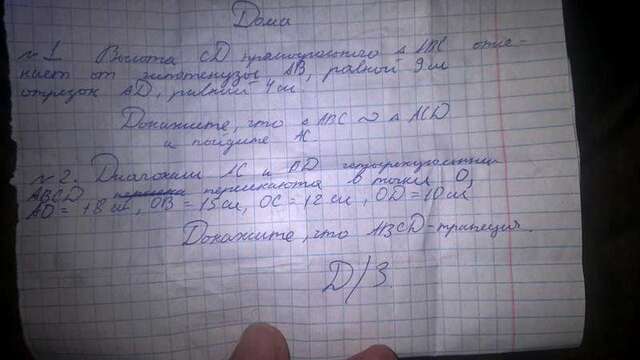 Дома
№ 1 Высота CD прямоугольного Δ ABC отсе-
кает от гипотенузы AB, равной 9 см
отрезок AD, равный 4 см.
Докажите, что Δ ABC ~ Δ ACD
и найдите AC.
№ 2. Диагонали AC и BD четырехугольника
ABCD пересекаются в точке O,
AO = 18 см, OB = 15 см, OC = 12 см, OD = 10 см
Докажите, что ABCD - трапеция.
D/З